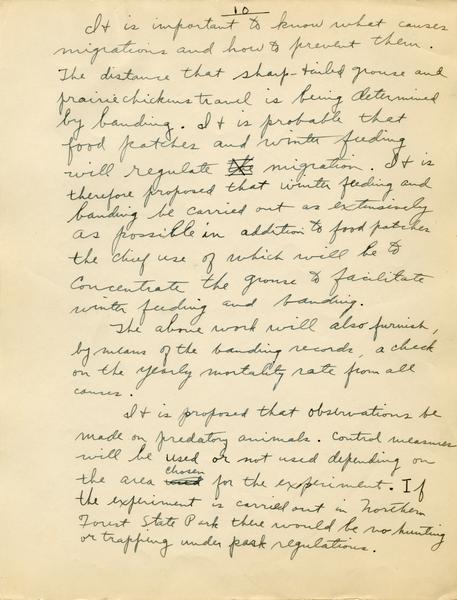 10
It is important to know what causes
migrations and how to prevent them.
The distance that sharp-tailed grouse and
prairie chickens travel is being determined
by banding. It is probable that
food patches and winter feeding
will regulate migration. It is
therefore proposed that winter feeding and
banding be carried out as extensively
as possible in addition to food patches
the chief use of which will be to
concentrate the grouse to facilitate
winter feeding and banding.
The above work will also furnish,
by means of the banding records, a check
on the yearly mortality rate from all
causes.
It is proposed that observations be
made on predatory animals. Control measures
will be used or not used depending on
the area chosen for the experiment. If
the experiment is carried out in Northern
Forest State Park there would be no hunting
or trapping under park regulations.